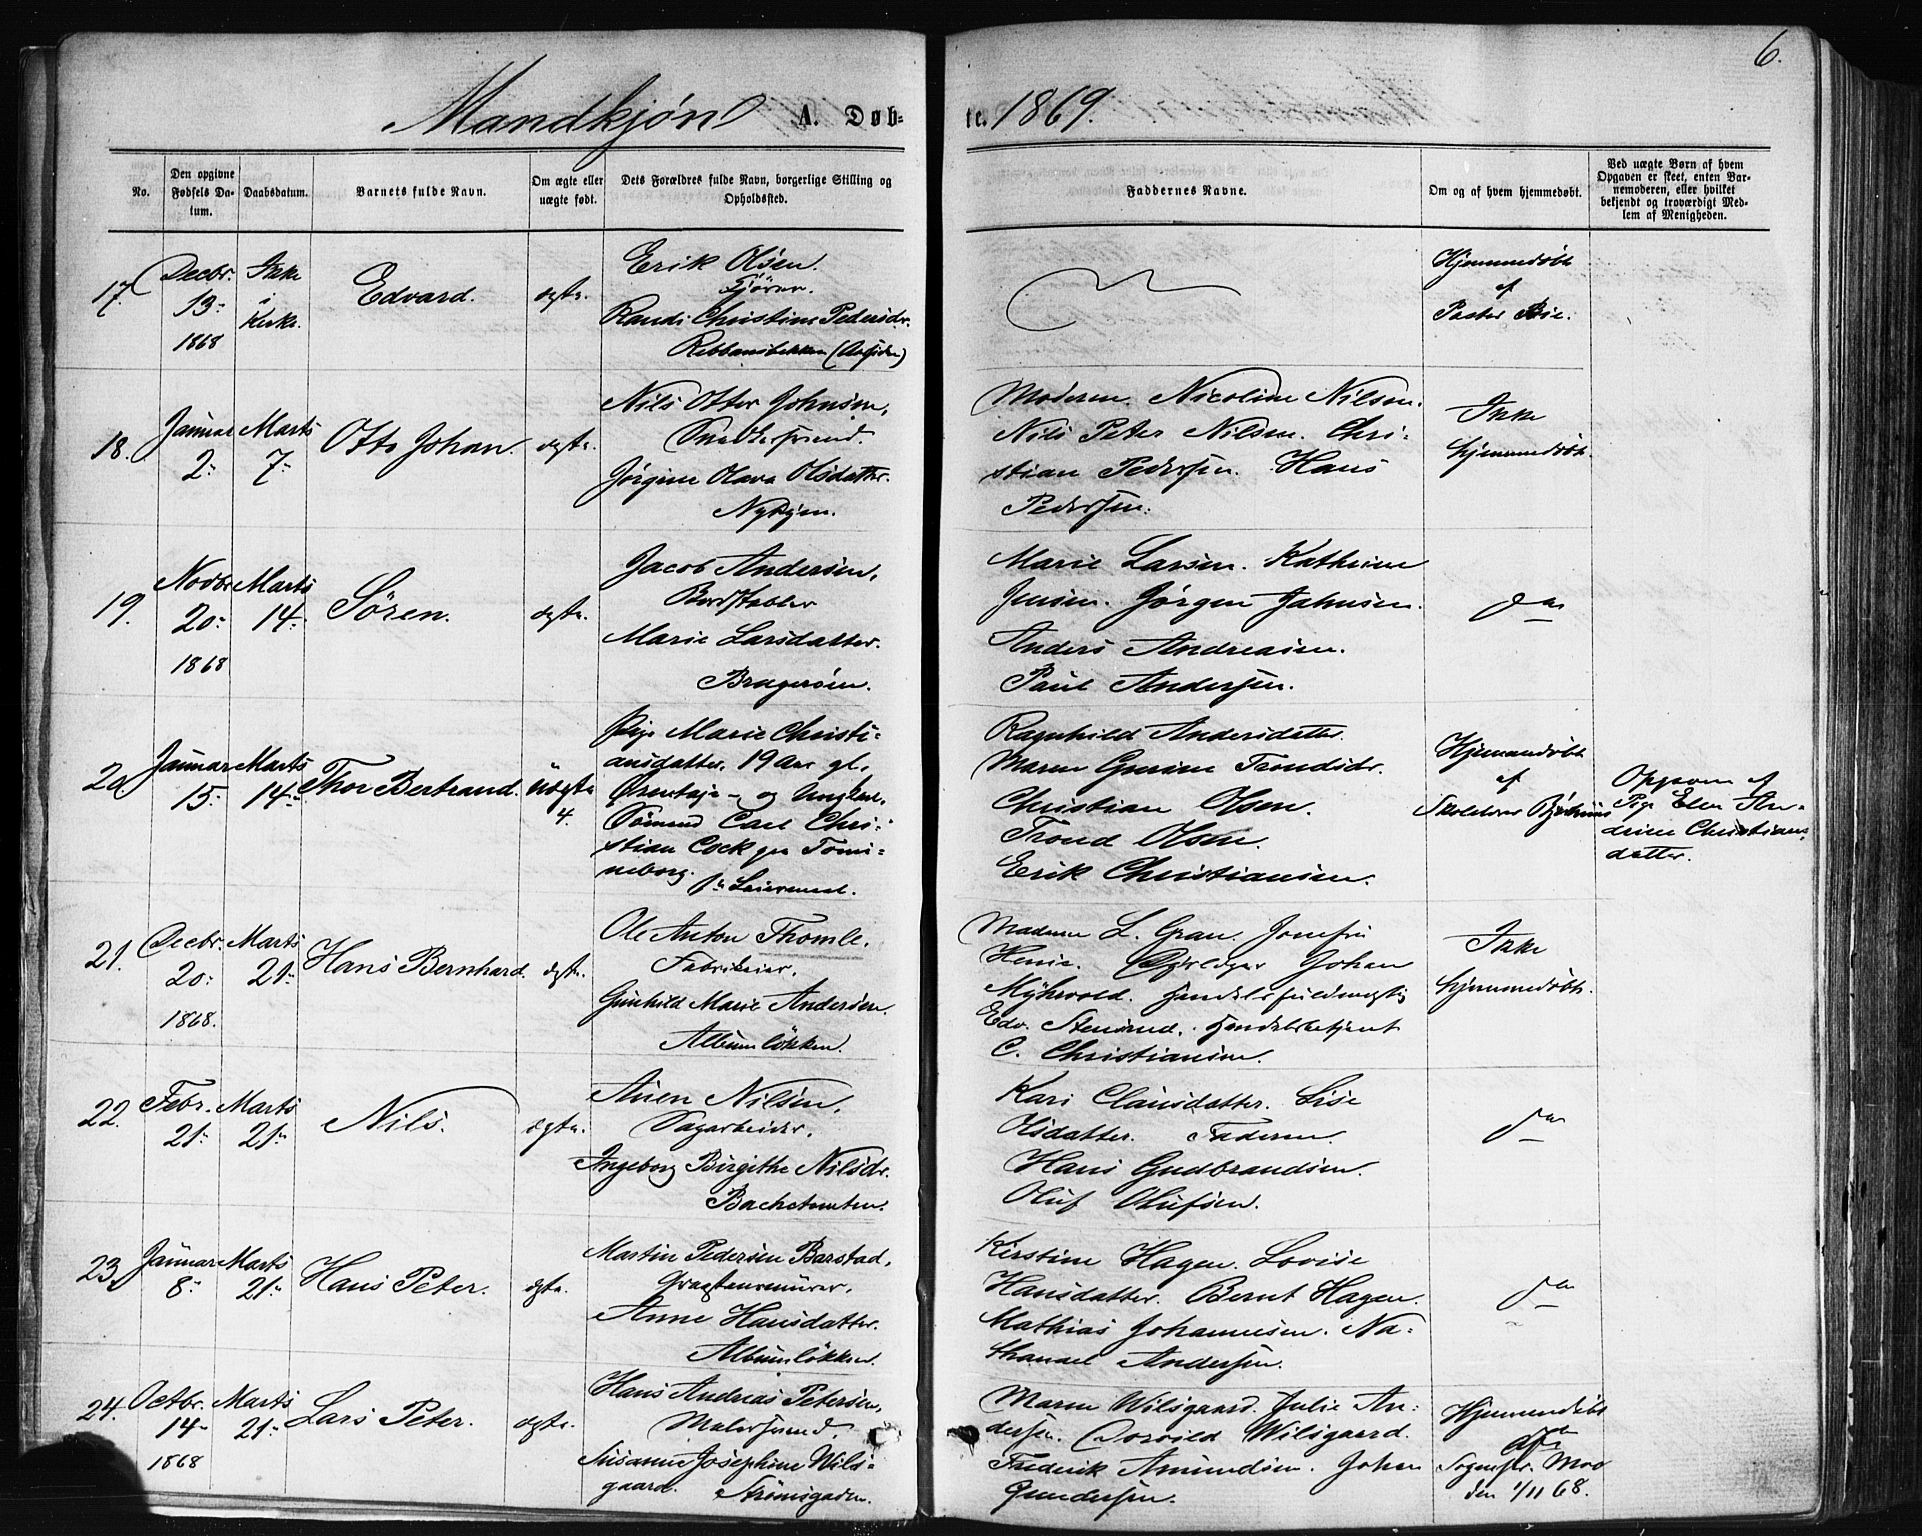 6.
Mandkjøn A. Døb-
te. 1869.
No.
Den opgivne
Fødsels Da-
tum.
Daabsdatum.
Barnets fulde Navn.
Om ægte eller
uægte født.
Dets Forældres fulde Navn, borgerlige Stilling og
Opholdssted.
Faddernes Navne.
Om og af hvem hjemmedøbt.
Ved uægte Børn af hvem
Opgaven er skeet, enten Bar-
nemoderen, eller hvilket
bekjendt og troværdigt Med-
lem af Menigheden.
17.
Decbr.
13-
1868
Ikke
i
Kirke.
Edvard.
ægte.
Erik Olsen.
Randi Christine Pedersdr.
Hjemmedøbt
af
Pastor Bie.
18.
Januar
2-
Marts
7-
Otto Johan.
ægte.
Nils Otter Johnsen,
Snedkersvend.
Jørgine Olava Olsdatter.
Nybyen.
Moderen. Nicoline Nilsen.
Nils Peter Nilsen. Chri-
stian Pedersen. Hans
Pedersen.
Ikke
hjemmedøbt.
19.
Novbr
20-
1868
Marts
14-
Sören.
ægte.
Jacob Andersen,
Bordstabler
Marie Larsdatter.
Bragerøen.
Marie Larsen. Kathrine
Jensen. Jørgen Jahnsen.
Anders Andreasen.
Paul Andersen.
do
20
Januar
15-
Marts
14-
Thor Bertrand.
uægte
4.
Pige Marie Christi-
ansdatter. 19 Aar gl.
Ørentaje- og Ungkarl,
Sømand Carl Chri-
stian Cock paa Tomi-
neborg.
1ste Leiermaal.
Ragnhild Andersdatter.
Maren Gurine Trondsdr.
Christian Olsen.
Trond Olsen.
Erik Christiansen.
Hjemmedøbt
af
Skolelærer
Opgaven af
Pige Elen An-
drine Christians-
datter.
21.
Decbr.
20-
1868.
Marts
21-
Hans Bernhard.
ægte.
Ole Anton Thomle,
Fabrikeier,
Gunhild Marie Andersen.
Albumløkken.
Madame L. Gran. Jomfru
Henie. Johan
Myhrvold. Handelsfuldmægtig
Edv. Stensrud. Handelsbetjent
C. Christiansen.
Ikke
hjemmedøbt.
22.
Febr.
21-
Marts
21-
Nils.
ægte.
Auen Nilsen,
Sagarbeider,
Ingeborg Birgithe Nilsdr.
Bachetomten.
Kari Clausdatter. Lise
Olsdatter. Faderen.
Hans Gudbrandsen.
Oluf Olufsen.
do
23
Januar
8-
Marts
21-
Hans Peter.
ægte.
Martin Pedersen Barstad,
Graastensmurer,
Anne Hansdatter.
Albumløkken.
Kirstine Hagen. Lovise
Hansdatter. Bernt Hagen.
Mathias Johannesen. Na-
thanael Andersen.
do
24.
Octbr.
14-
1868
Marts
21-
Lars Peter.
ægte.
Hans Andreas Petersen,
Malersvend.
Susanne Josephine Wils-
gaard. Strømsgaden.
Maren Wilsgaard. Julie An-
dersen. Wilsgaard.
Frederik Amundsen. Johan
Gundersen.
Hjemmedøbt
af
Sognepr. Moe
den 1/11 68.